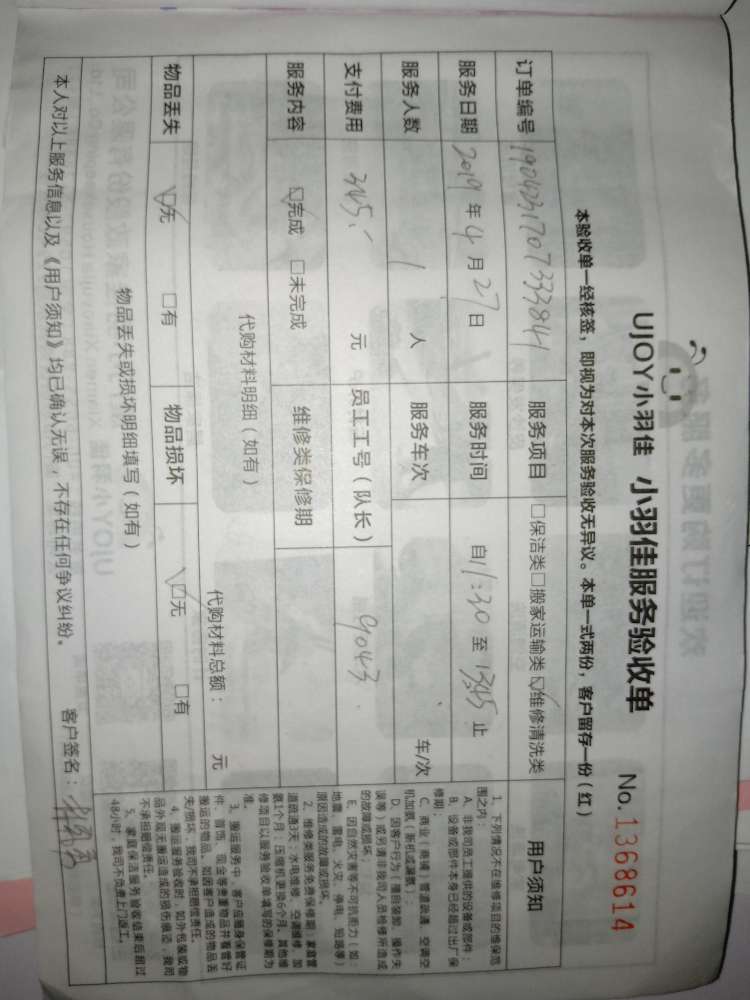 UJOY小羽佳 小羽佳服务验收单 No.1368614
本验收单一经核签，即视为对本次服务验收无异议。本单一式两份，客户留存一份（红）
订单编号 服务项目 □保洁类□搬家运输类☑维修清洗类
服务日期 2019年4月27日 服务时间 自11:30至1345止
服务人数 1人 服务车次 车/次
支付费用 345.-元 员工工号（队长） 9043
服务内容 ☑完成 □未完成 维修类保修期
代购材料明细（如有） 代购材料总额： 元
物品丢失 ☑无 □有 物品损坏 ☑无 □有
物品丢失或损坏明细填写（如有）
本人对以上服务信息以及《用户须知》均已确认无误，不存在任何争议纠纷。 客户签名：
用户须知
1、下列情况不在维修项目的维保范
围之内：
A、非我司员工提供的设备或部件；
B、设备或部件本身已经超过出厂保
修期；
C、商业（商铺）管道疏通、空调空
机加氟（新机或漏氟）；
D、因客户行为（擅自装卸、操作失
误等）或另请非我司人员维修所造成
的故障或损坏；
E、因自然灾害等不可抗拒力（如：
地震、雷电、火灾、停电、短路等）
原因造成的故障或损坏。
2、维修类服务免费保修期：家庭管
道疏通3天；水电维修、空调维修、加
氟1个月；压缩机更换6个月。其他维
修项目以服务验收单填写的保修期为
准。
3、搬运服务中，客户应随身保管证
件、首饰、现金等贵重物品并看管好
搬运的物品。如因客户造成的物品丢
失/损坏，我司不承担赔偿责任。
4、搬运服务验收时，如外包装或物
品外观无搬运造成的损伤痕迹，我司
不承担赔偿责任。
5、家庭保洁服务验收结束后超过
48小时，我司不负责上门返工。